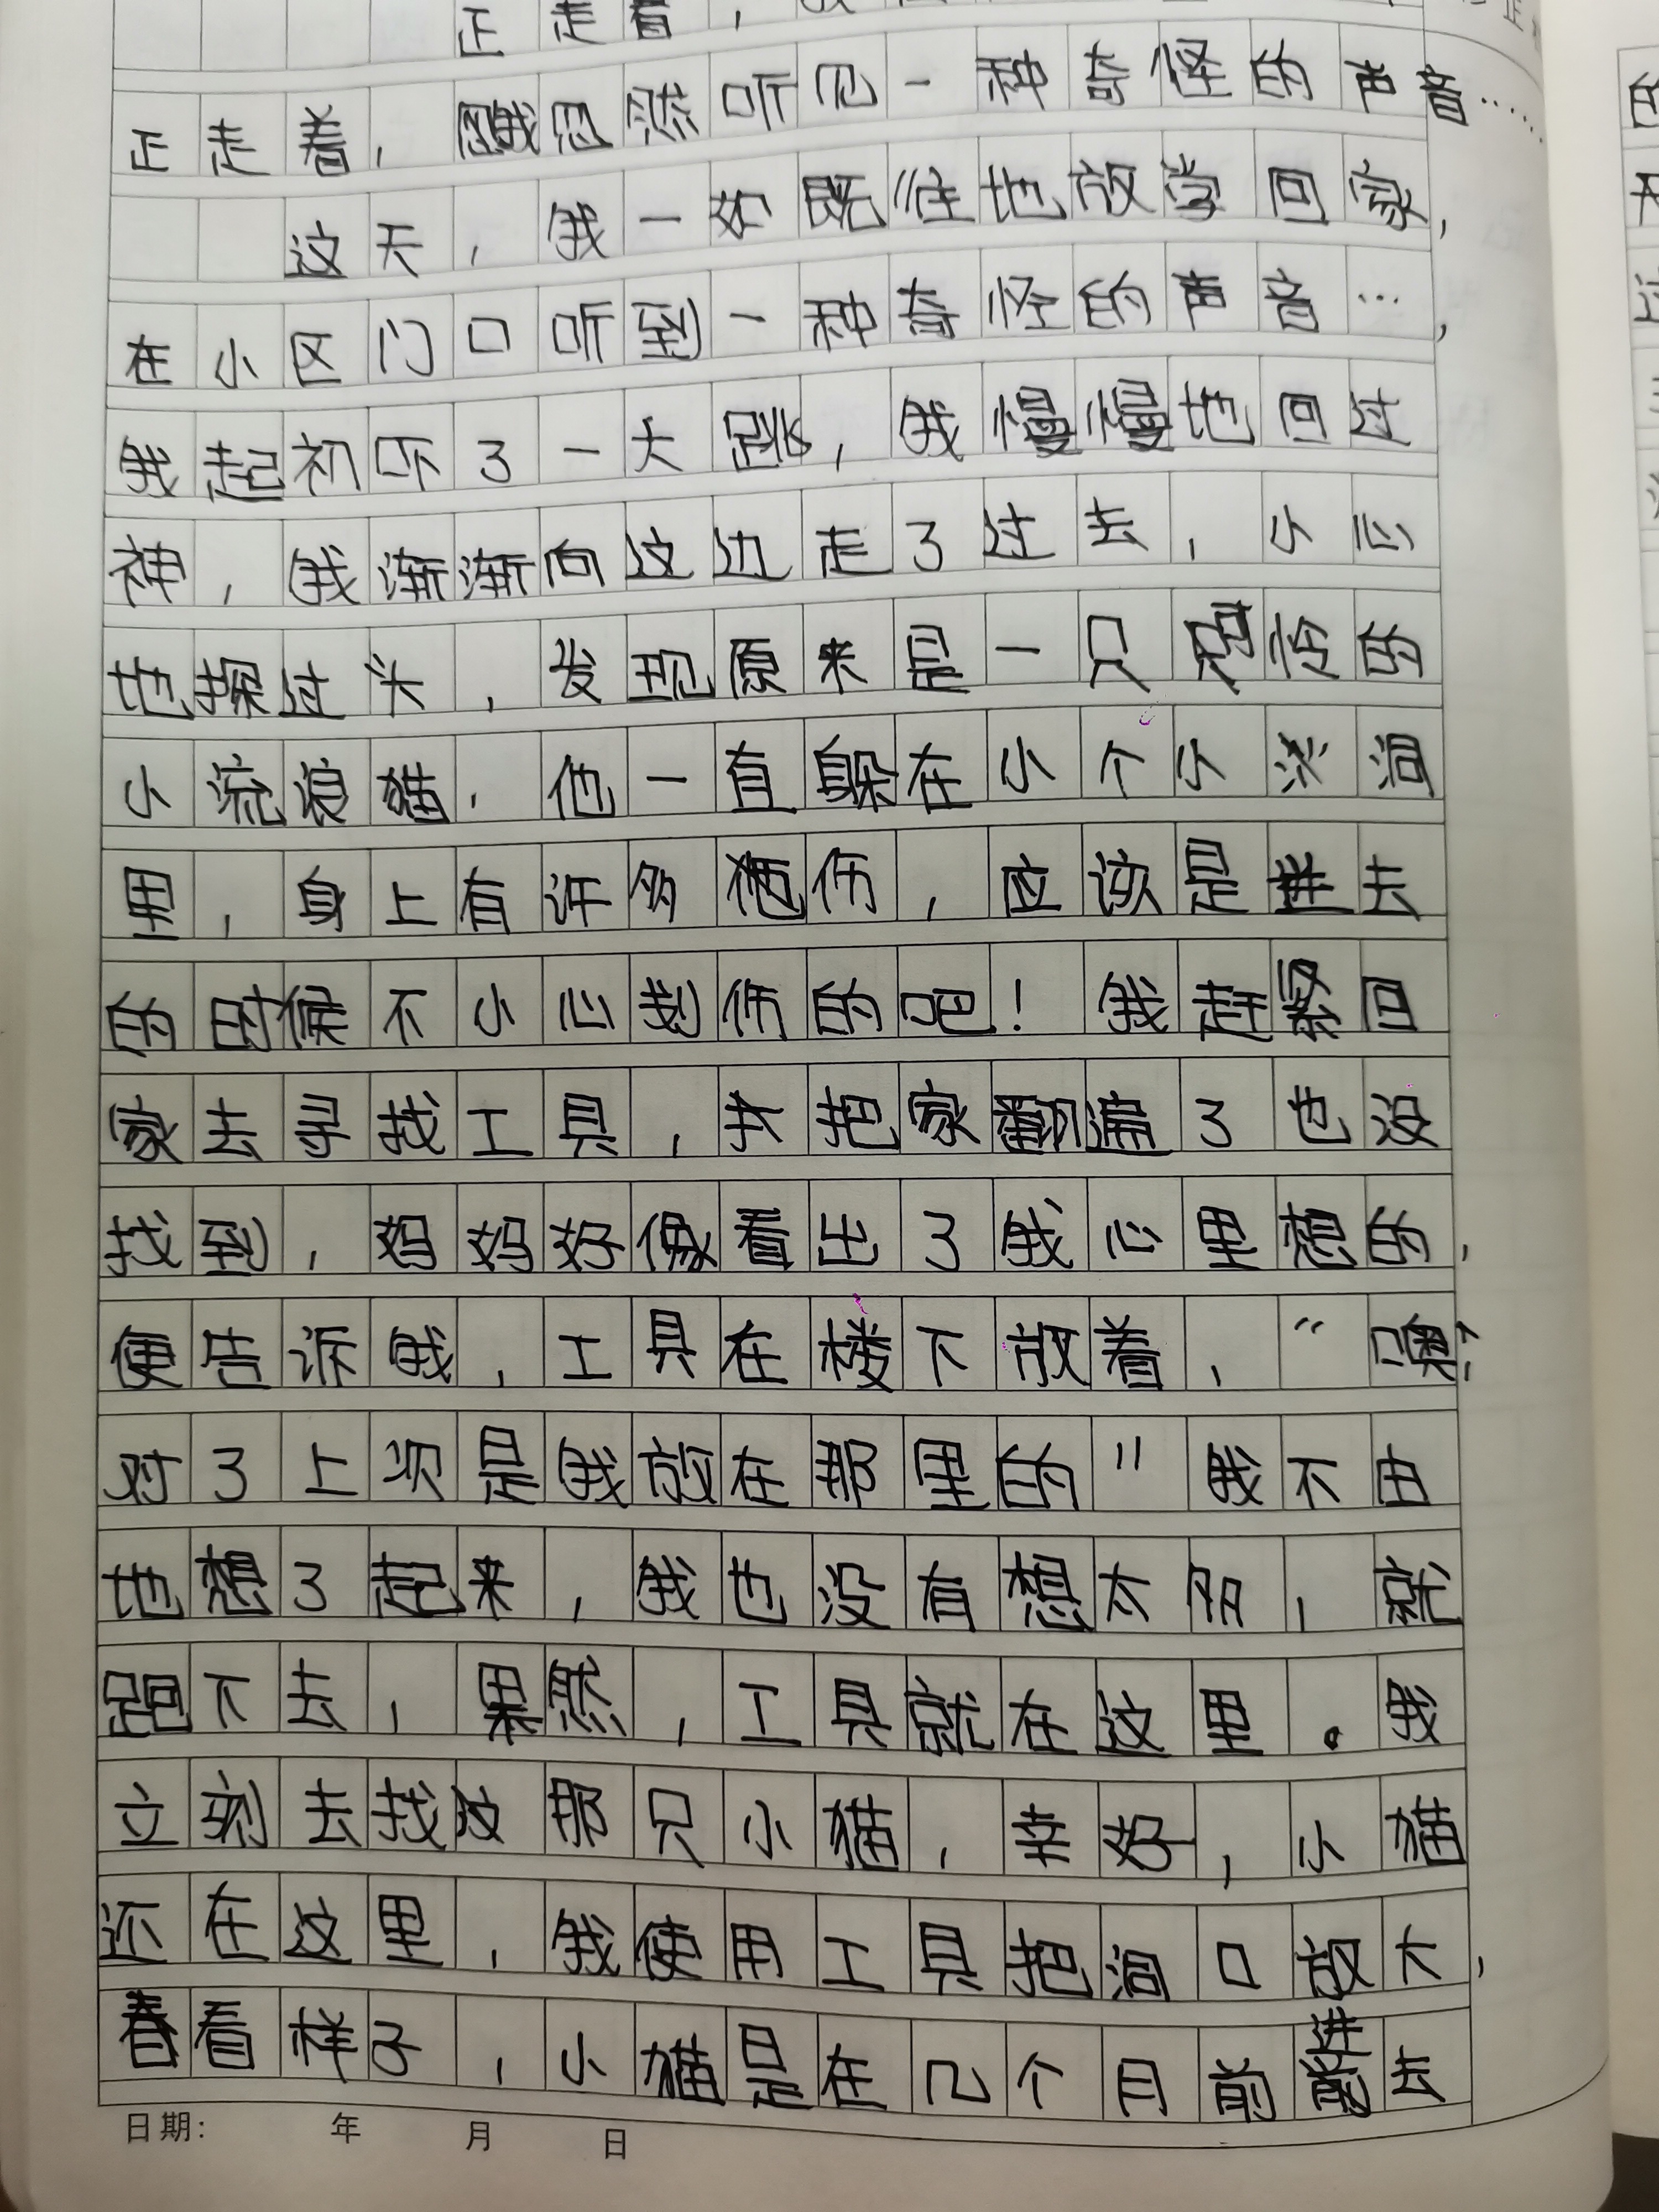 正走着，我
正走着，我忽然听见一种奇怪的声音……
这天，我一如既往地放学回家，
在小区门口听到一种奇怪的声音…，
我起初吓了一大跳，我慢慢地回过
神，我渐渐向这边走了过去，小心
地探过头，发现原来是一只可怜的
小流浪猫，他一直躲在小个小洞
里，身上有许多伤，应该是进去
的时候不小心划伤的吧！我赶紧回
家去寻找工具，我把家翻遍了也没
找到，妈妈好像看出了我心里想的，
便告诉我，工具在楼下放着，“噢！
对了上次是我放在那里的”我不由
地想了起来，我也没有想太多，就
跑下去，果然，工具就在这里。我
立刻去找那只小猫，幸好，小猫
还在这里，我使用工具把洞口放大，
看样子，小猫是在几个月前进去
日期： 年 月 日